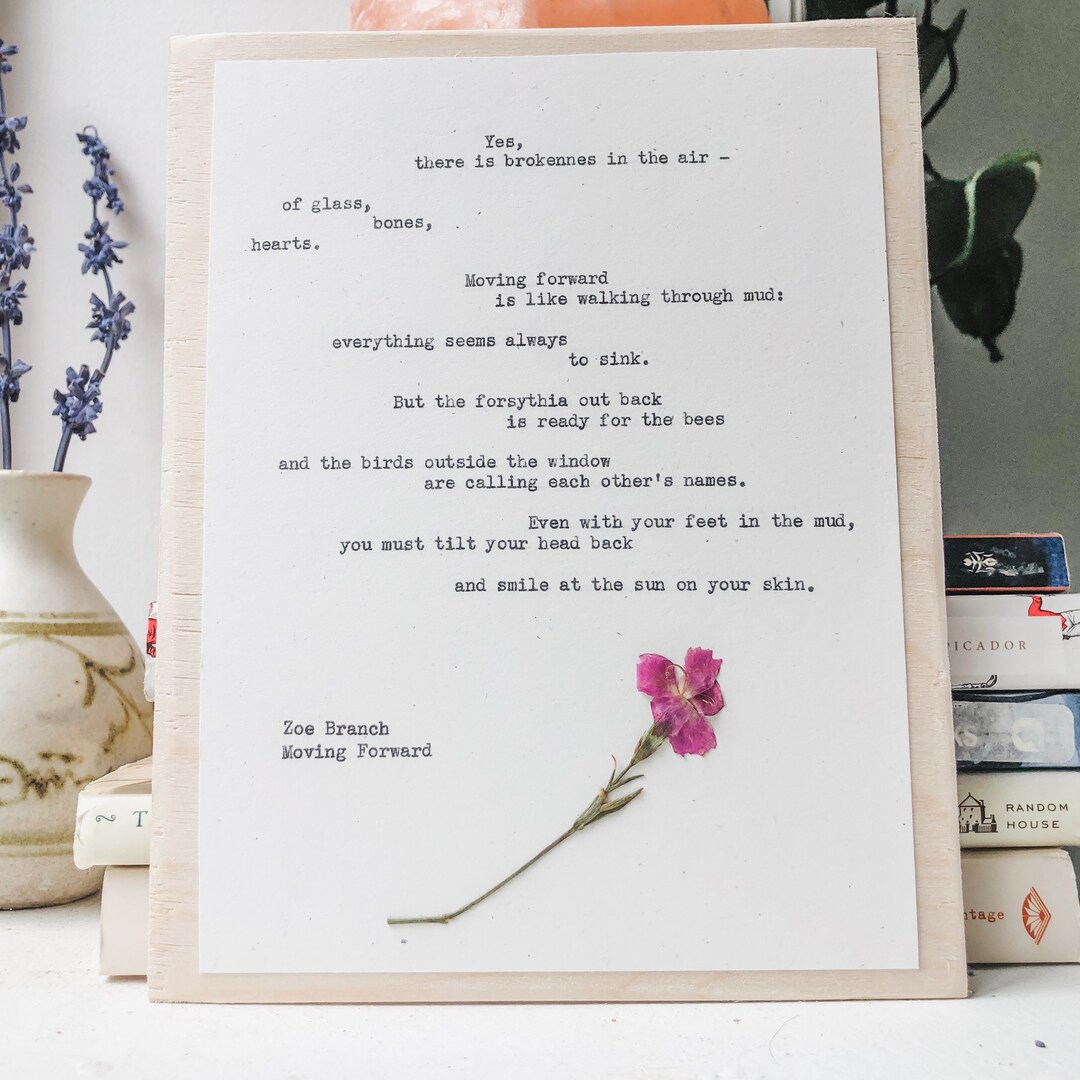 Yes,
there is brokennes in the air –
of glass,
bones,
hearts.
Moving forward
is like walking through mud:
everything seems always
to sink.
But the forsythia out back
is ready for the bees
and the birds outside the window
are calling each other's names.
Even with your feet in the mud,
you must tilt your head back
and smile at the sun on your skin.
Zoe Branch
Moving Forward
PICADOR
RANDOM
HOUSE